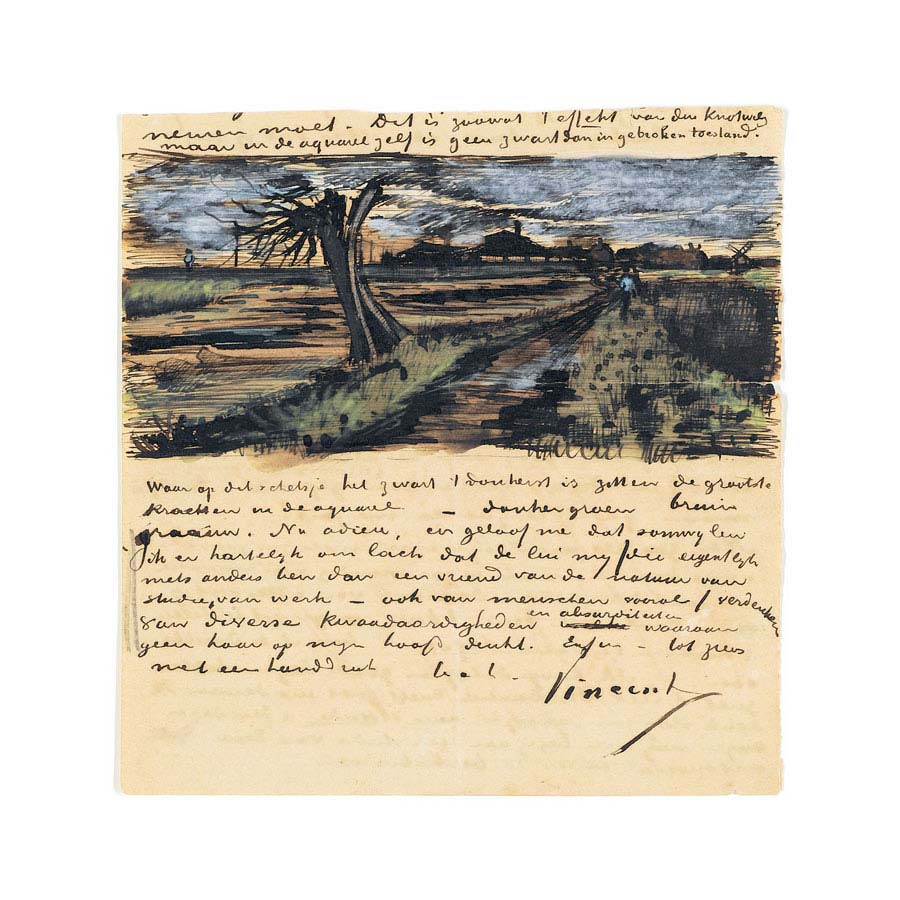 nemen moet. Dit is zoowat 't effekt van den Knotwilg
maar in de aquarel zelf is geen zwart dan in gebroken toestand.
Waar op dit schetsje het zwart 't donkerst is zitten de grootste
krachten in de aquarel – donkergroen bruin
graauw. Nu adieu, en geloof me dat somwylen
ik er hartelyk om lach dat de lui my /die eigentlyk
niets anders ben dan een vriend van de natuur van
studie, van werk – ook van menschen vooral / verdenken
van diverse kwaadaardigheden en absurditeiten waaraan
geen haar op myn hoofd denkt. Enfin – tot ziens
met een handdruk
t. à t.
Vincent